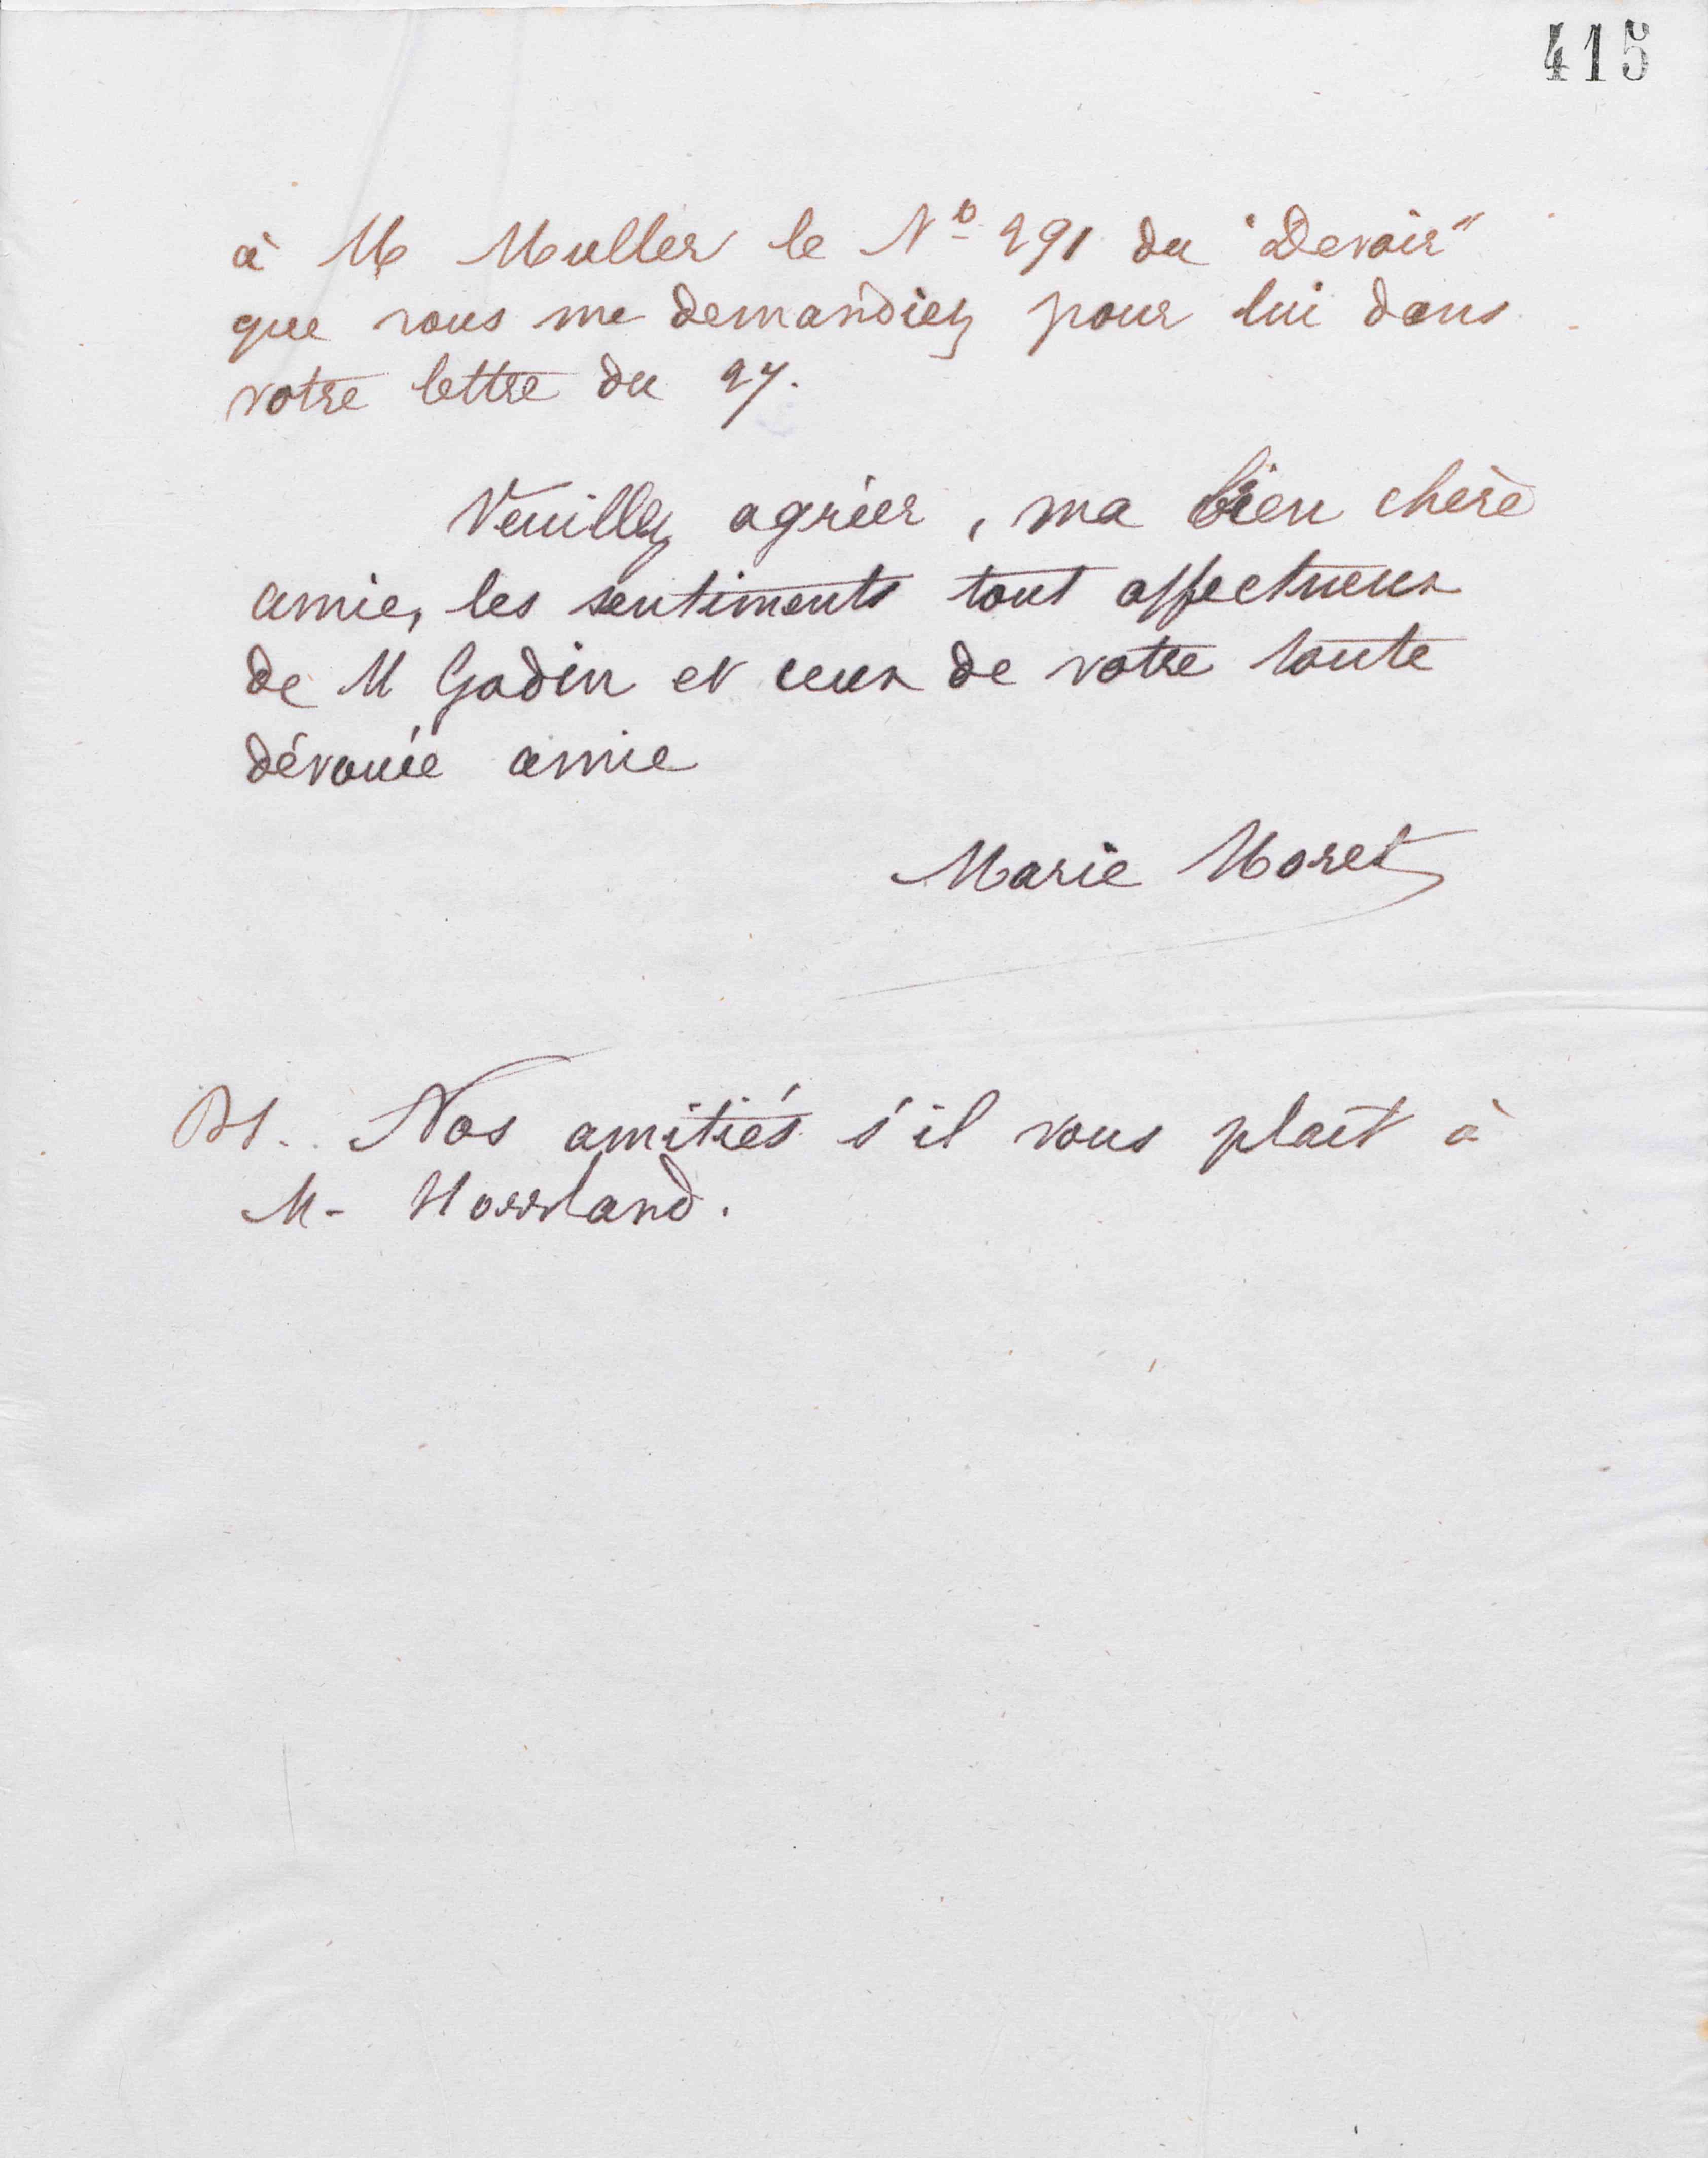 415
à M Muller le Nº 291 du "Devoir"
que vous me demandiez pour lui dans
votre lettre du 27.
Veuillez agréer, ma bien chère
amie, les sentiments tout affectueux
de M Godin et ceux de votre toute
dévouée amie
Marie Moret
PS. Nos amitiés s'il vous plait à
M-